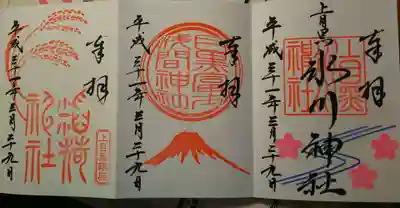 奉拝
上目黒氷川神社
平成三十一年三月二十九日
奉拝
目黒富士
浅間神社
平成三十一年三月二十九日
奉拝
稲荷
神社
平成三十一年三月二十九日